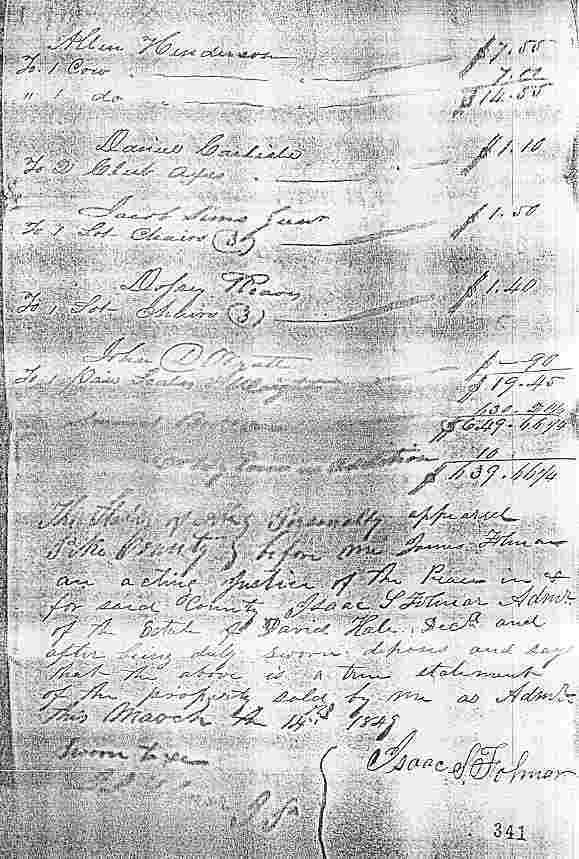 Allen Henderson
To 1 Cow $7.55
" 1 do 7.00
$14.55
Daniel Carlisle
To 2 Club Axes $1.10
Jacob Sims Junr
To 1 Lot Chairs (3) $1.50
To 1 Lot Chairs (3) $1.40
John Wyatt $ - 90
To 1 Pair $19.45
630.21¼
$649.66¼
in Addition 10
$639.66¼
The State of Ala } Personally appeared
Pike County } before me James Folmar
an acting Justice of the Peace in &
for said County Isaac S Folmar Admr.
of the Estate of David Hale Decd and
after being duly sworn deposes and says
that the above is a true statement
of the property sold by me as Admr.
this March the 14th 1849
Sworn to
Isaac S. Folmar
J P
341